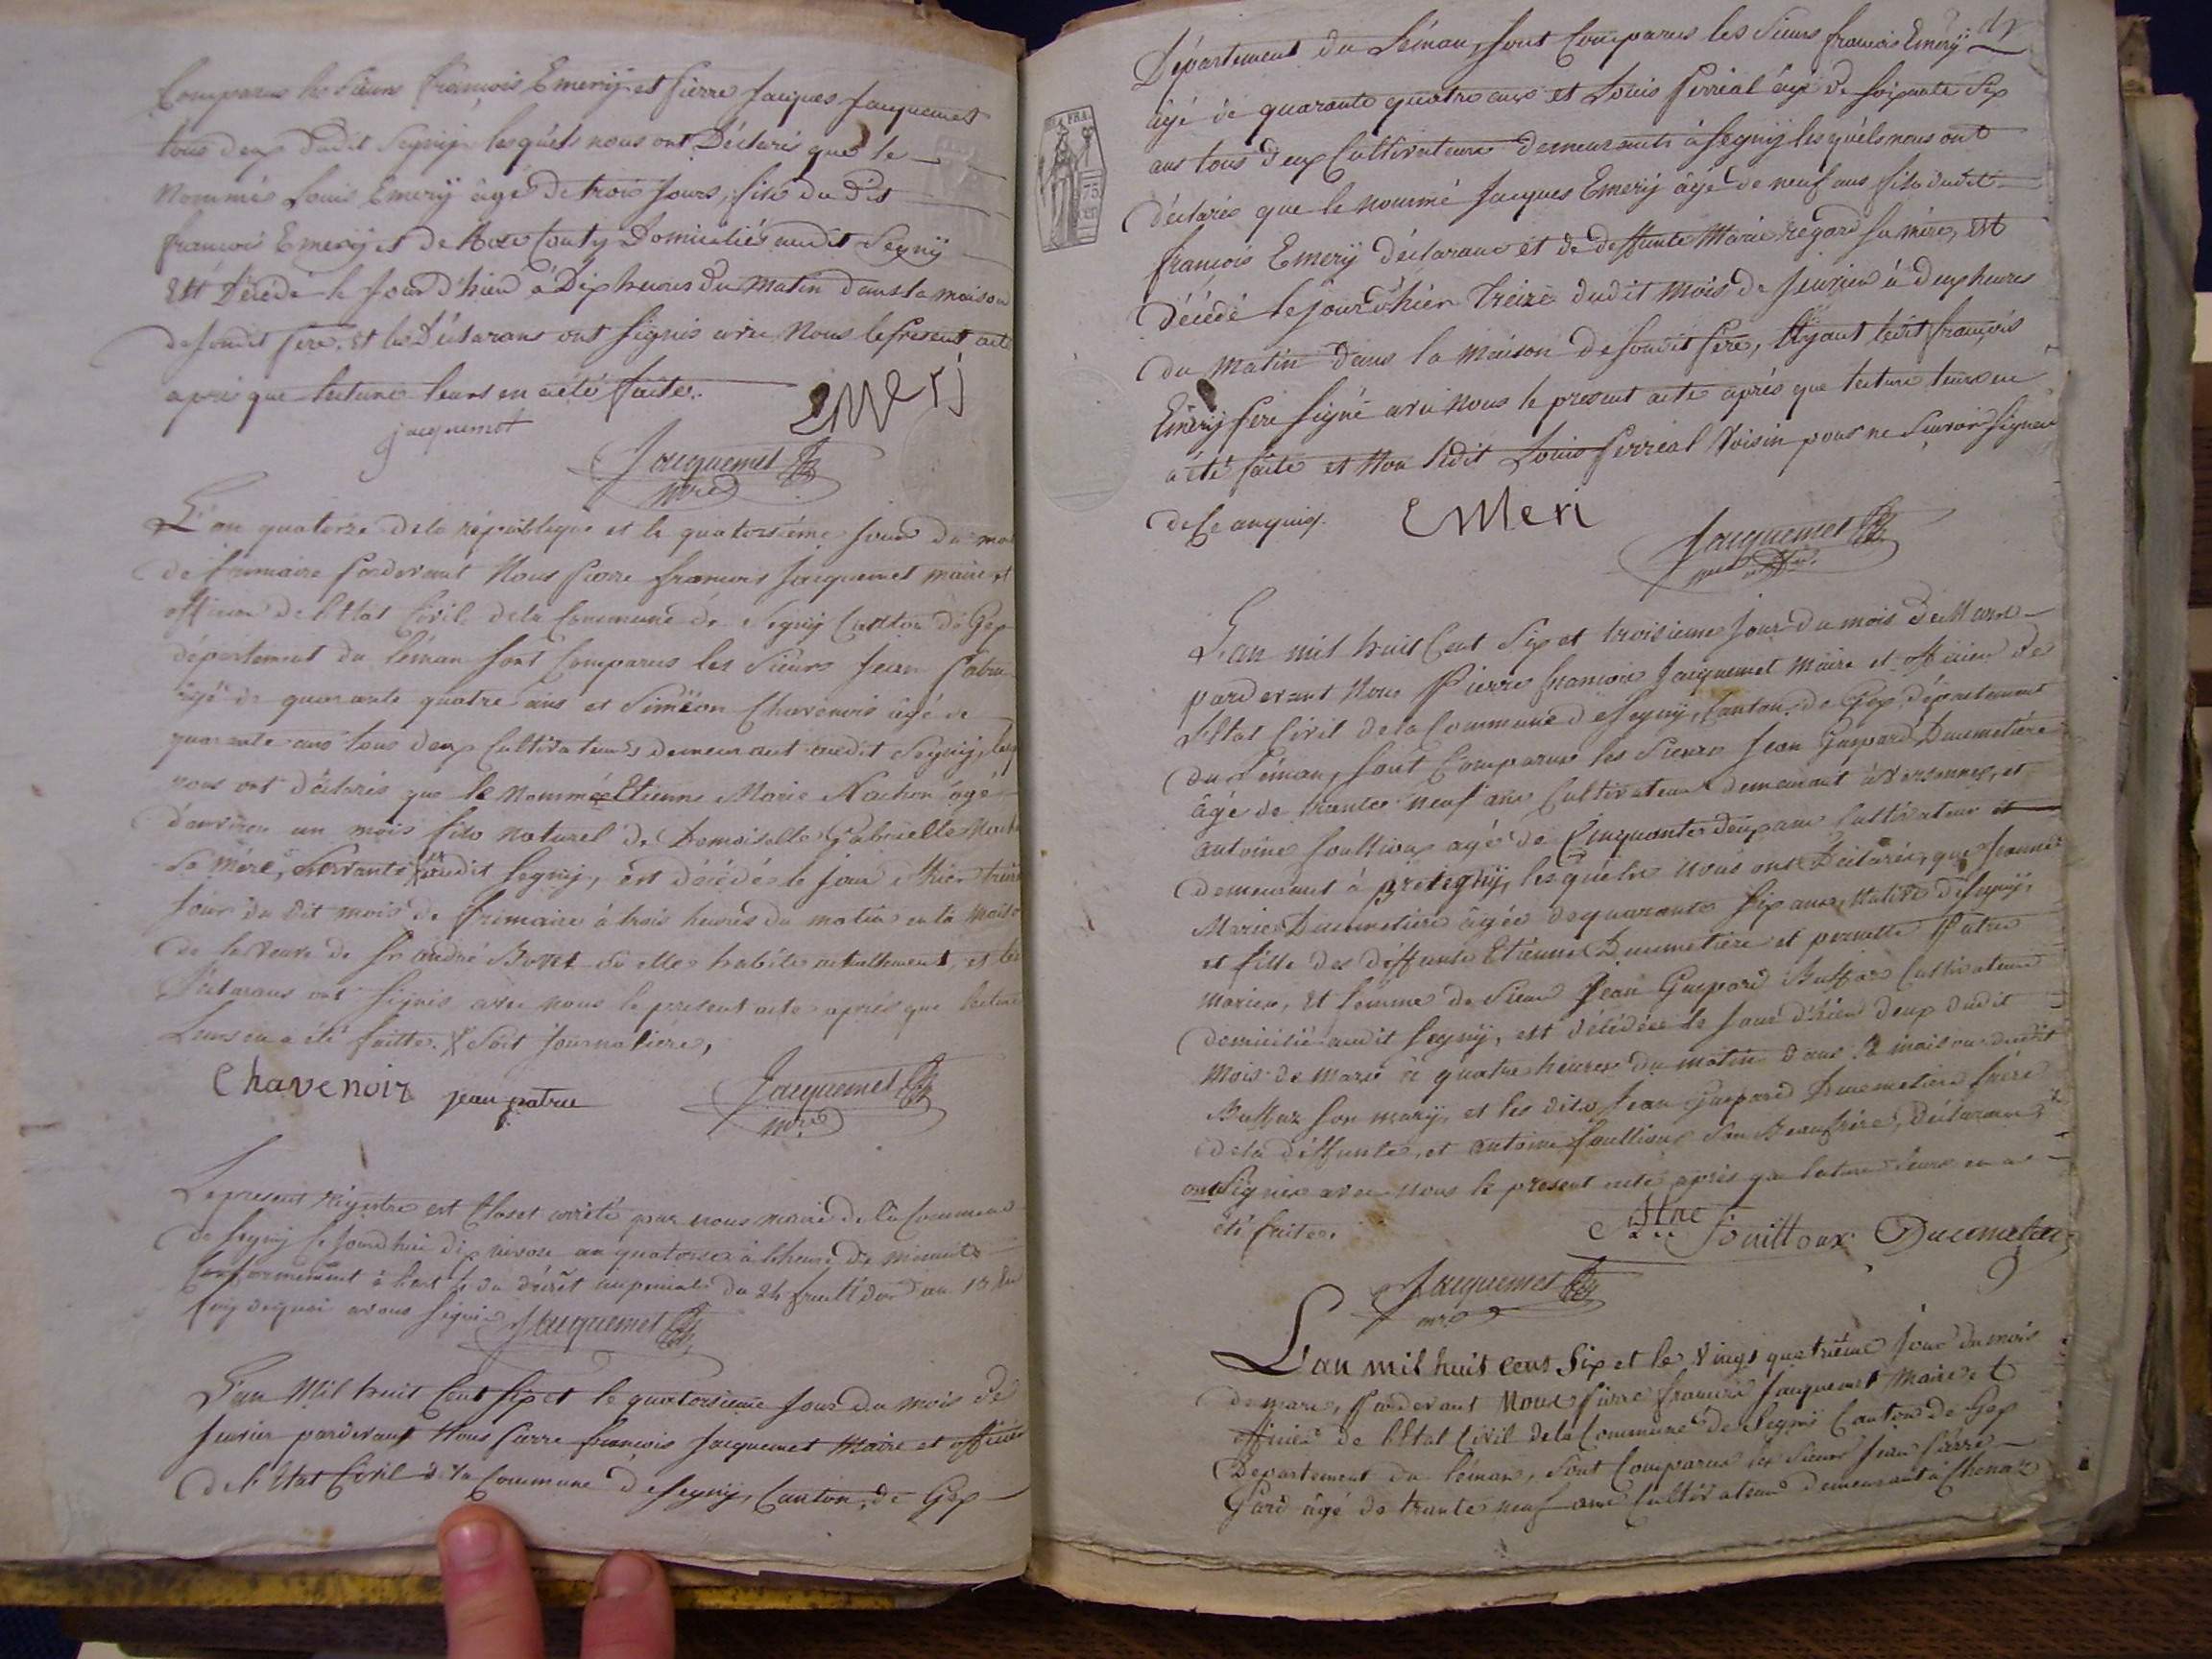 Comparus les Sieurs françois Emerÿ et pierre Jacques Jacquemet
tous deux dudit Segnÿ lesquéls nous ont Déclarés que le
Nommé Louis Emerÿ âgé de trois Jours, fils du dit
françois Emerÿ et de Domiciliés audit Segnÿ
Est Décédé le Jour d'hier à Dix heures du Matin dans la maison
de sondit pere, et les Déclarans ont Signés avec Nous le present acte
après que lecture leurs en a été faite.
Emerj
jacquemet
Jacquemet
mre
L'an quatorze de la république et le quatorzième Jour du mois
de frimaire pardevant Nous pierre francois Jacquemet maire et
officier de l'Etat Civil de la Commune de Segnÿ Canton de Gex
département du léman sont Comparus les Sieurs Jean patru
âgé de quarante quatre ans et Siméon Chavenois âgé de
quarante ans tous deux Cultivateurs demeurant audit Segnÿ,
nous ont déclarés que le Nommé Etienne Marie Nachon âgé
d'environ un mois fils naturel de Demoiselle Gabrielle
Sa mére, audit Segnÿ, est décédé le jour d'hier
Jour du dit mois de frimaire à trois heures du matin en la maison
de la Veuve de Sr andré Bovet où elle habite actuellement, et les
Déclarans ont Signés avec nous le present acte après que lecture
Leurs en a été faitte. X Soit Journaliére,
Chavenoiz jean patru
Jacquemet
mre
Le present régistre est Clos et arrêté par nous maire de la Commune
de Segnÿ Ce Jourd'hui dix nivose an quatorze à l'heure de minuit
Conformément à l'art du décrêt impérial du 24 fructidor an 13
foy dequoi avons Signé Jacquemet
L'an Mil huit Cent Six et le quatorsieme Jour du mois de
Janvier pardevant Nous pierre francois Jacquemet Maire et officier
de l'Etat Civil de la Commune de Segnÿ, Canton de Gex
Département du Léman, sont Comparus les Sieurs francois Emerÿ
âgé de quarante quatre ans et Louis perréal âgé de soixante Six
ans tous deux Cultivateurs demeurants à Segnÿ lesquéls nous ont
déclarés que le nommé Jacques Emerÿ âgé de neuf ans fils dudit
francois Emerÿ déclarant et de deffunte Marie regard sa mére, est
décédé le jour d'hier treize dudit mois de Janvier à deux heures
du matin dans la maison de sondit pere, Ayant ledit françois
Emerÿ pere Signé avec Nous le present acte après que lecture leurs en
a été faite et Non ledit Louis perréal Voisin pour ne Savoir Signer
de Ce anquis.
EMeri
Jacquemet
L'an mil huit Cent Six et troisieme Jour du mois de Mars
pardevant Nous Pierre francois Jacquemet Maire et officier de
l'Etat Civil de la Commune de Segnÿ, Canton de Gex département
du Léman, sont Comparus les Sieurs Jean Gaspard Ducimetiére
âgé de trante neuf ans Cultivateur demeurant à Versonnex, et
antoine fouilloux agé de Cinquante deux ans Cultivateur et
demeurant à Pretegnÿ, lesquéls nous ont Déclarés, que Jeanne
Marie Ducimetiére âgée de quarante Six ans, Native de Segnÿ,
et fille des déffunts Etienne Ducimetiére et pernette Patru
mariés, et femme de Sieur Jean Gaspard Buffaz Cultivateur
domicilié audit Segnÿ, est décédée le Jour d'hier deux dudit
mois de mars à quatre heures du matin dans la maison dudit
Buffaz Son marÿ, et les dits Jean Gaspard Ducimetiére frére
de la déffunte, et antoine fouilloux Son Beaufrére, déclarans,
ont Signés avec nous le present acte après que lecture leurs en a
été faite.
Atne fouilloux Ducimetier
Jacquemet
mre
L'an mil huit cent Six et le Vingt quatriéme Jour du mois
de mars, Pardevant Nous pierre francois Jacquemet Maire et
officier de l'Etat Civil de la Commune de Segnÿ Canton de Gex
Departement du léman, sont Comparus les Sieurs Jean pierre
âgé de trante neuf ans Cultivateur demeurant à Chenaz